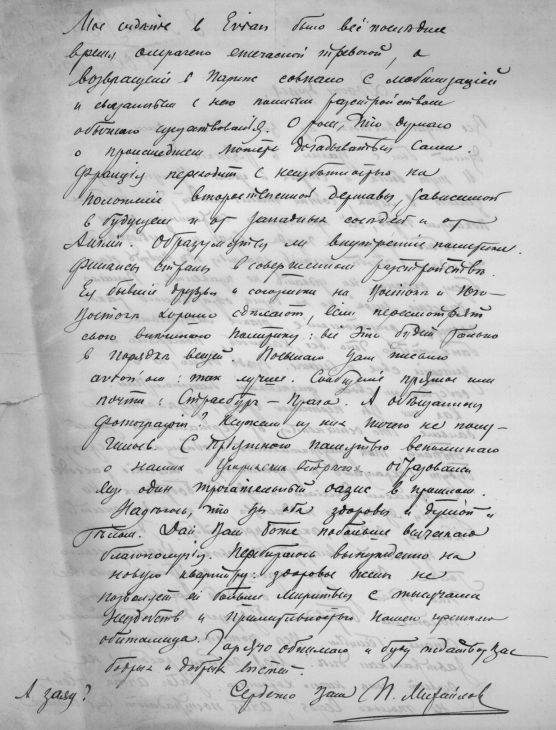 Мое сидѣніе в Evian было всё последнее
время омрачено ежечасной тревогой, а
возвращеніе в Париж совпало с мобилизаціей
и связанным с нею полным разстройством
обычного существованія. О том, что думаю
о происшедшем можете догадываться сами.
Франція переходит с неизбѣжностью на
положеніе второстепенной державы, зависимой
в будущем и от западных соседей и от
Англии. Образумятся ли внутренніе политики.
Финансы страны в совершенном разстройствѣ.
Ея бывшіе друзья и союзники на Востокѣ и Юго-
Востокѣ хорошо сдѣлают, если пересмотрят
свою внешнюю политику: всё это будет только
в порядкѣ вещей. Посылаю Вам письмо
avion'ом: так лучше. Сообщеніе прямое или
почти: Страсбург – Прага. А обѣщанныя
фотографіи? Неужели из них ничего не полу-
чилось. С пріятностью вспоминаю
о наших встречах
один трогательный оазис в прошлом.
Надѣюсь, что Вы оба здоровы и душой и
тѣлом. Дай Вам Боже побольше всяческаго
благополучія. Перебираюсь вынужденно на
новую квартиру: здоровье жены не
позволяет ей больше мириться с тысячами
неудобств и примитивностью нашего
обиталища. Горячо обнимаю и буду ждать от Вас
бодрых и добрых вѣстей.
Сердечно Ваш П. Михайлов